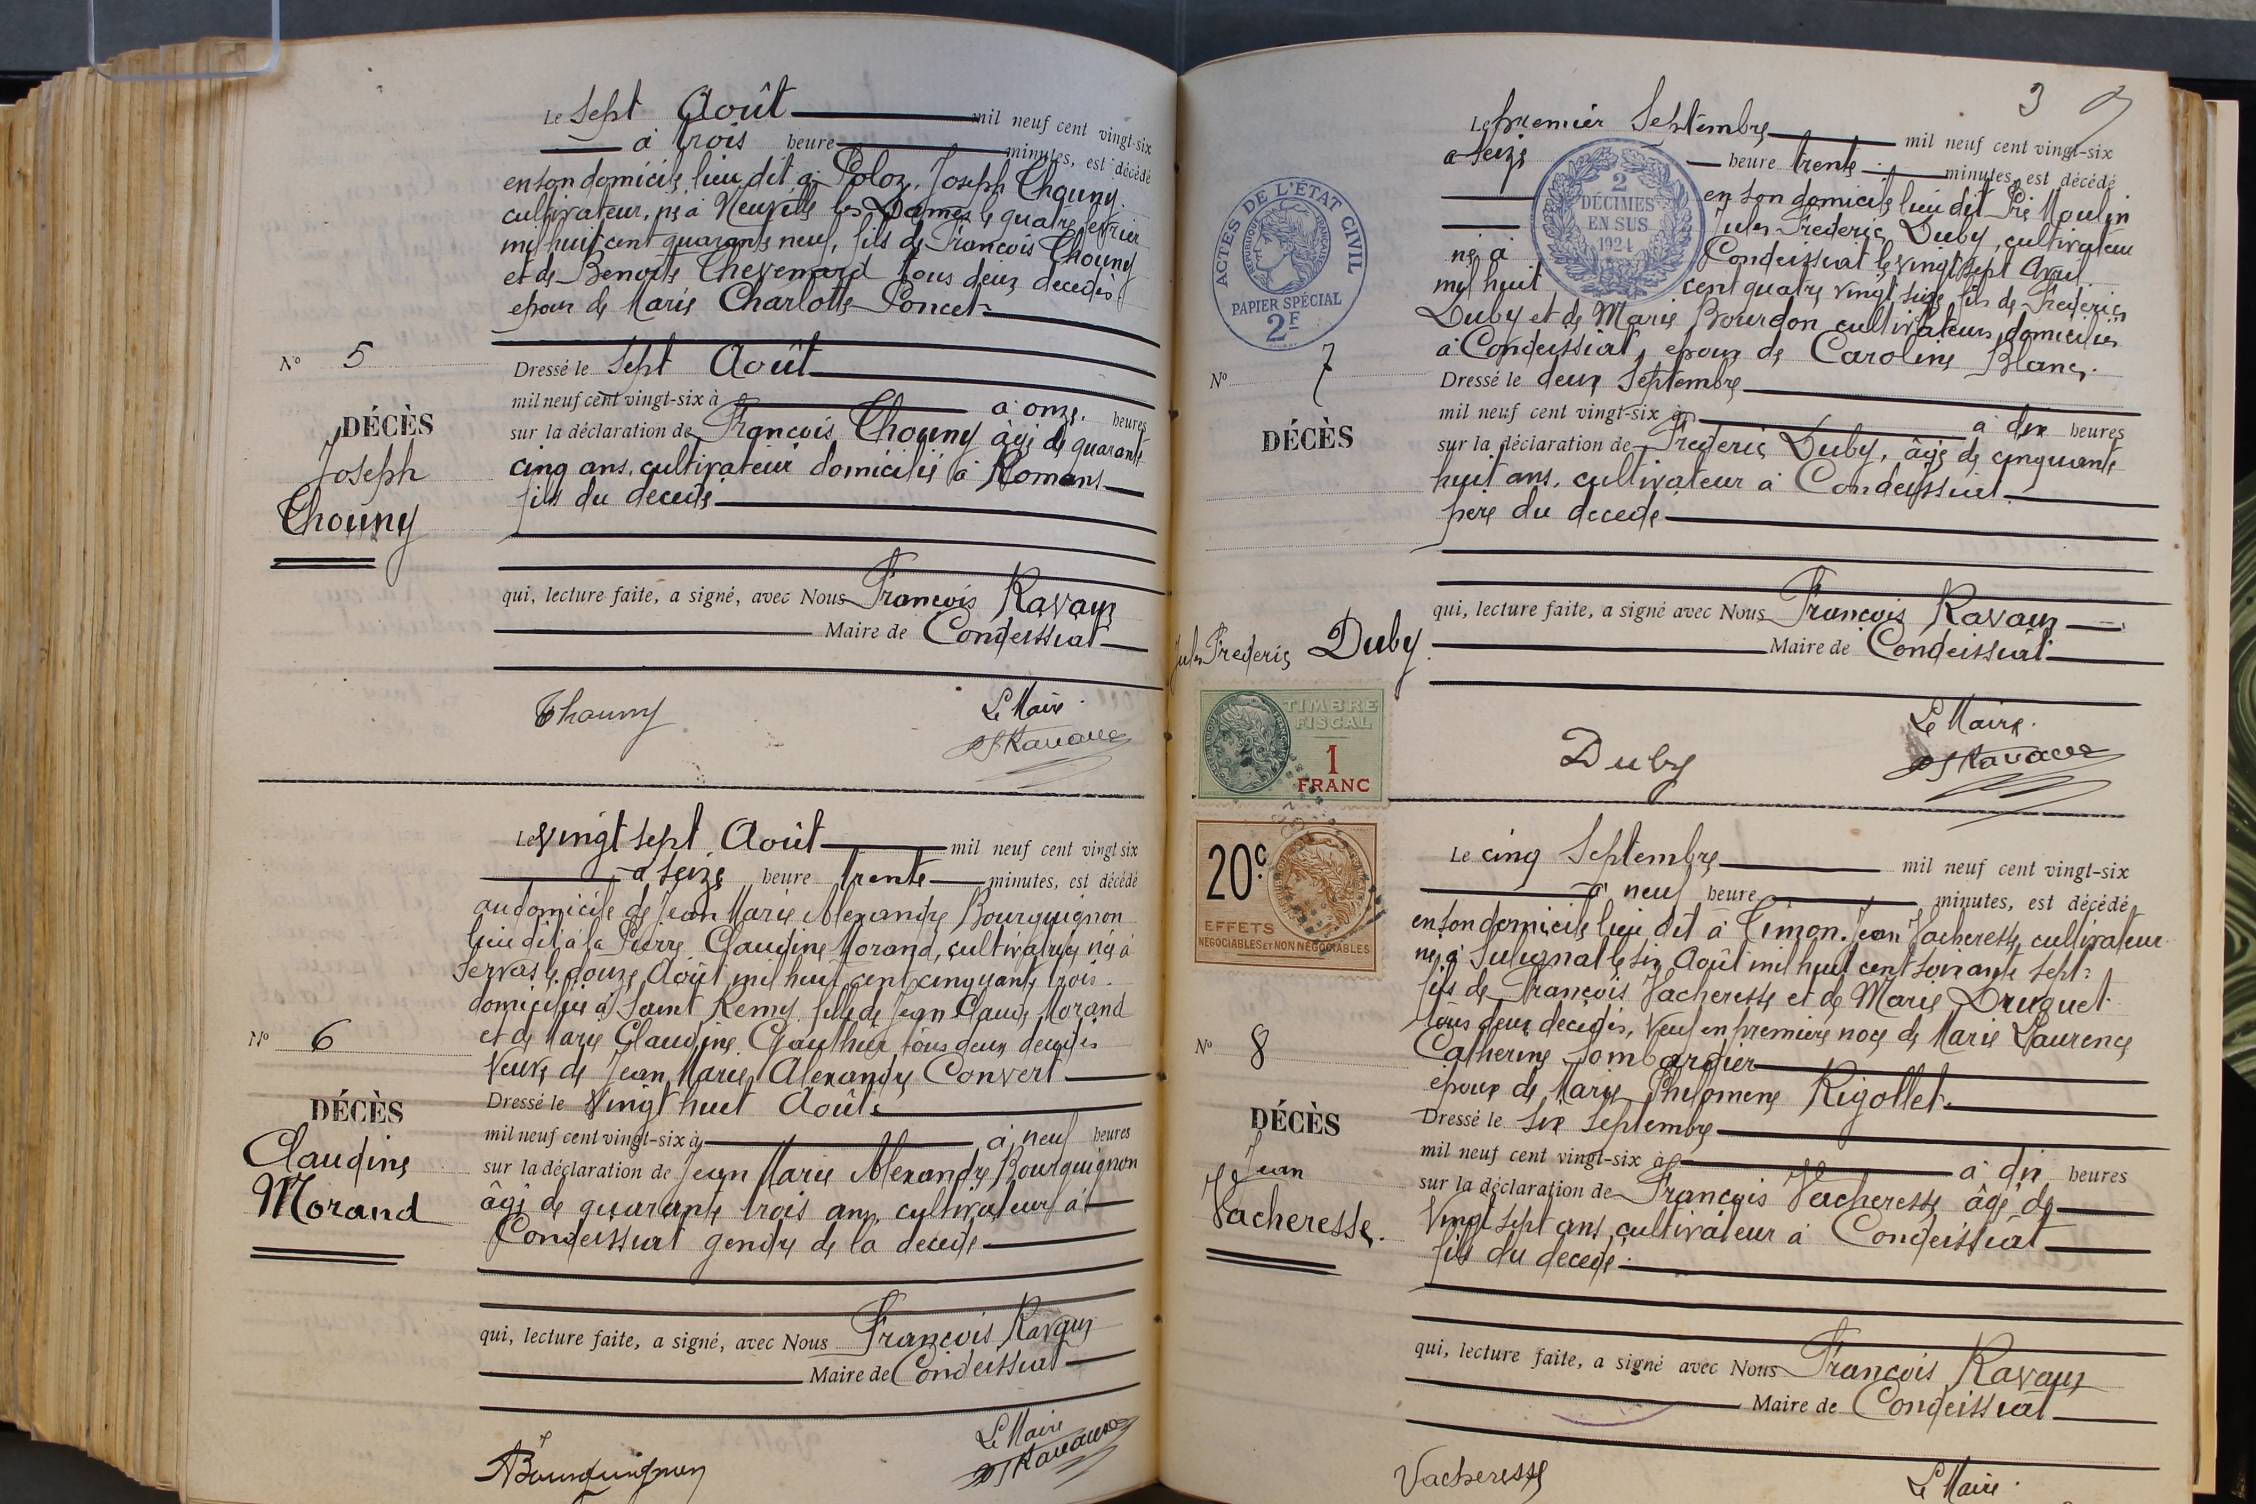 Le sept Août mil neuf cent vingt-six
à trois heure minutes, est décédé
en son domicile lieu dit à Poloz, Joseph Thouny
cultivateur, né à Neuville les Dames le quatre février
mil huit cent quarante neuf, fils de François Thouny
et de Benoite Thevenard tous deux décédés
époux de Marie Charlotte Poncet
N° 5
Dressé le sept Août
mil neuf cent vingt-six à à onze heures
DÉCÈS
sur la déclaration de François Thouny âgé de quarante
Joseph
cinq ans, cultivateur domicilié à Romans
Thouny
fils du décédé
qui, lecture faite, a signé, avec Nous François Ravaux
Maire de Condeissiat
Thouny
Le Maire
Le vingt sept Août mil neuf cent vingt six
à seize heure trente minutes, est décédé
au domicile de Jean Marie Alexandre Bourguignon
lieu dit à la Pierre Claudine Morand, cultivatrice née à
Servas le douze Août mil huit cent cinquante trois
domiciliée à Saint Remy fille de Jean Claude Morand
N° 6
et de Marie Claudine Gauthier tous deux décédés
Veuve de Jean Marie Alexandre Convert
DÉCÈS
Dressé le Vingt huit Août
mil neuf cent vingt-six à à neuf heures
Claudine
sur la déclaration de Jean Marie Alexandre Bourguignon
Morand
âgé de quarante trois ans, cultivateur à
Condeissiat gendre de la décédée
qui, lecture faite, a signé, avec Nous François Ravaux
Maire de Condeissiat
Le Maire
Bourguignon
3
Le premier Septembre mil neuf cent vingt-six
à seize heure trente minutes, est décédé
en son domicile lieu dit Pré Moulin
Jules Frédéric Duby, cultivateur
né à Condeissiat le vingt sept Avril
mil huit cent quatre vingt seize fils de Frédéric
Duby et de Marie Bourdon cultivateurs domiciliés
à Condeissiat, époux de Caroline Blanc
2
DÉCIMES
EN SUS
1924
ACTES DE L'ÉTAT CIVIL
RÉPUBLIQUE FRANÇAISE
PAPIER SPÉCIAL
2F
N° 7
Dressé le deux Septembre
mil neuf cent vingt-six à à dix heures
DÉCÈS
sur la déclaration de Frédéric Duby, âgé de cinquante
huit ans, cultivateur à Condeissiat
père du décédé
qui, lecture faite, a signé avec Nous François Ravaux
Jules Frédéric Duby
Maire de Condeissiat
TIMBRE
FISCAL
1
FRANC
Le Maire
Duby
20c
EFFETS
NÉGOCIABLES ET NON NÉGOCIABLES
Le cinq Septembre mil neuf cent vingt-six
à neuf heure minutes, est décédé
en son domicile lieu dit à Timon, Jean Vacheresse cultivateur
né à Sulignat le six Août mil huit cent soixante sept
fils de François Vacheresse et de Marie Druguet
tous deux décédés, Veuf en première noce de Marie Laurence
N° 8
Catherine Lombardier
époux de Marie Philomène Rigollet
DÉCÈS
Dressé le six Septembre
mil neuf cent vingt-six à à dix heures
Jean
sur la déclaration de François Vacheresse âgé de
Vacheresse
Vingt sept ans, cultivateur à Condeissiat
fils du décédé
qui, lecture faite, a signé avec Nous François Ravaux
Maire de Condeissiat
Vacheresse
Le Maire